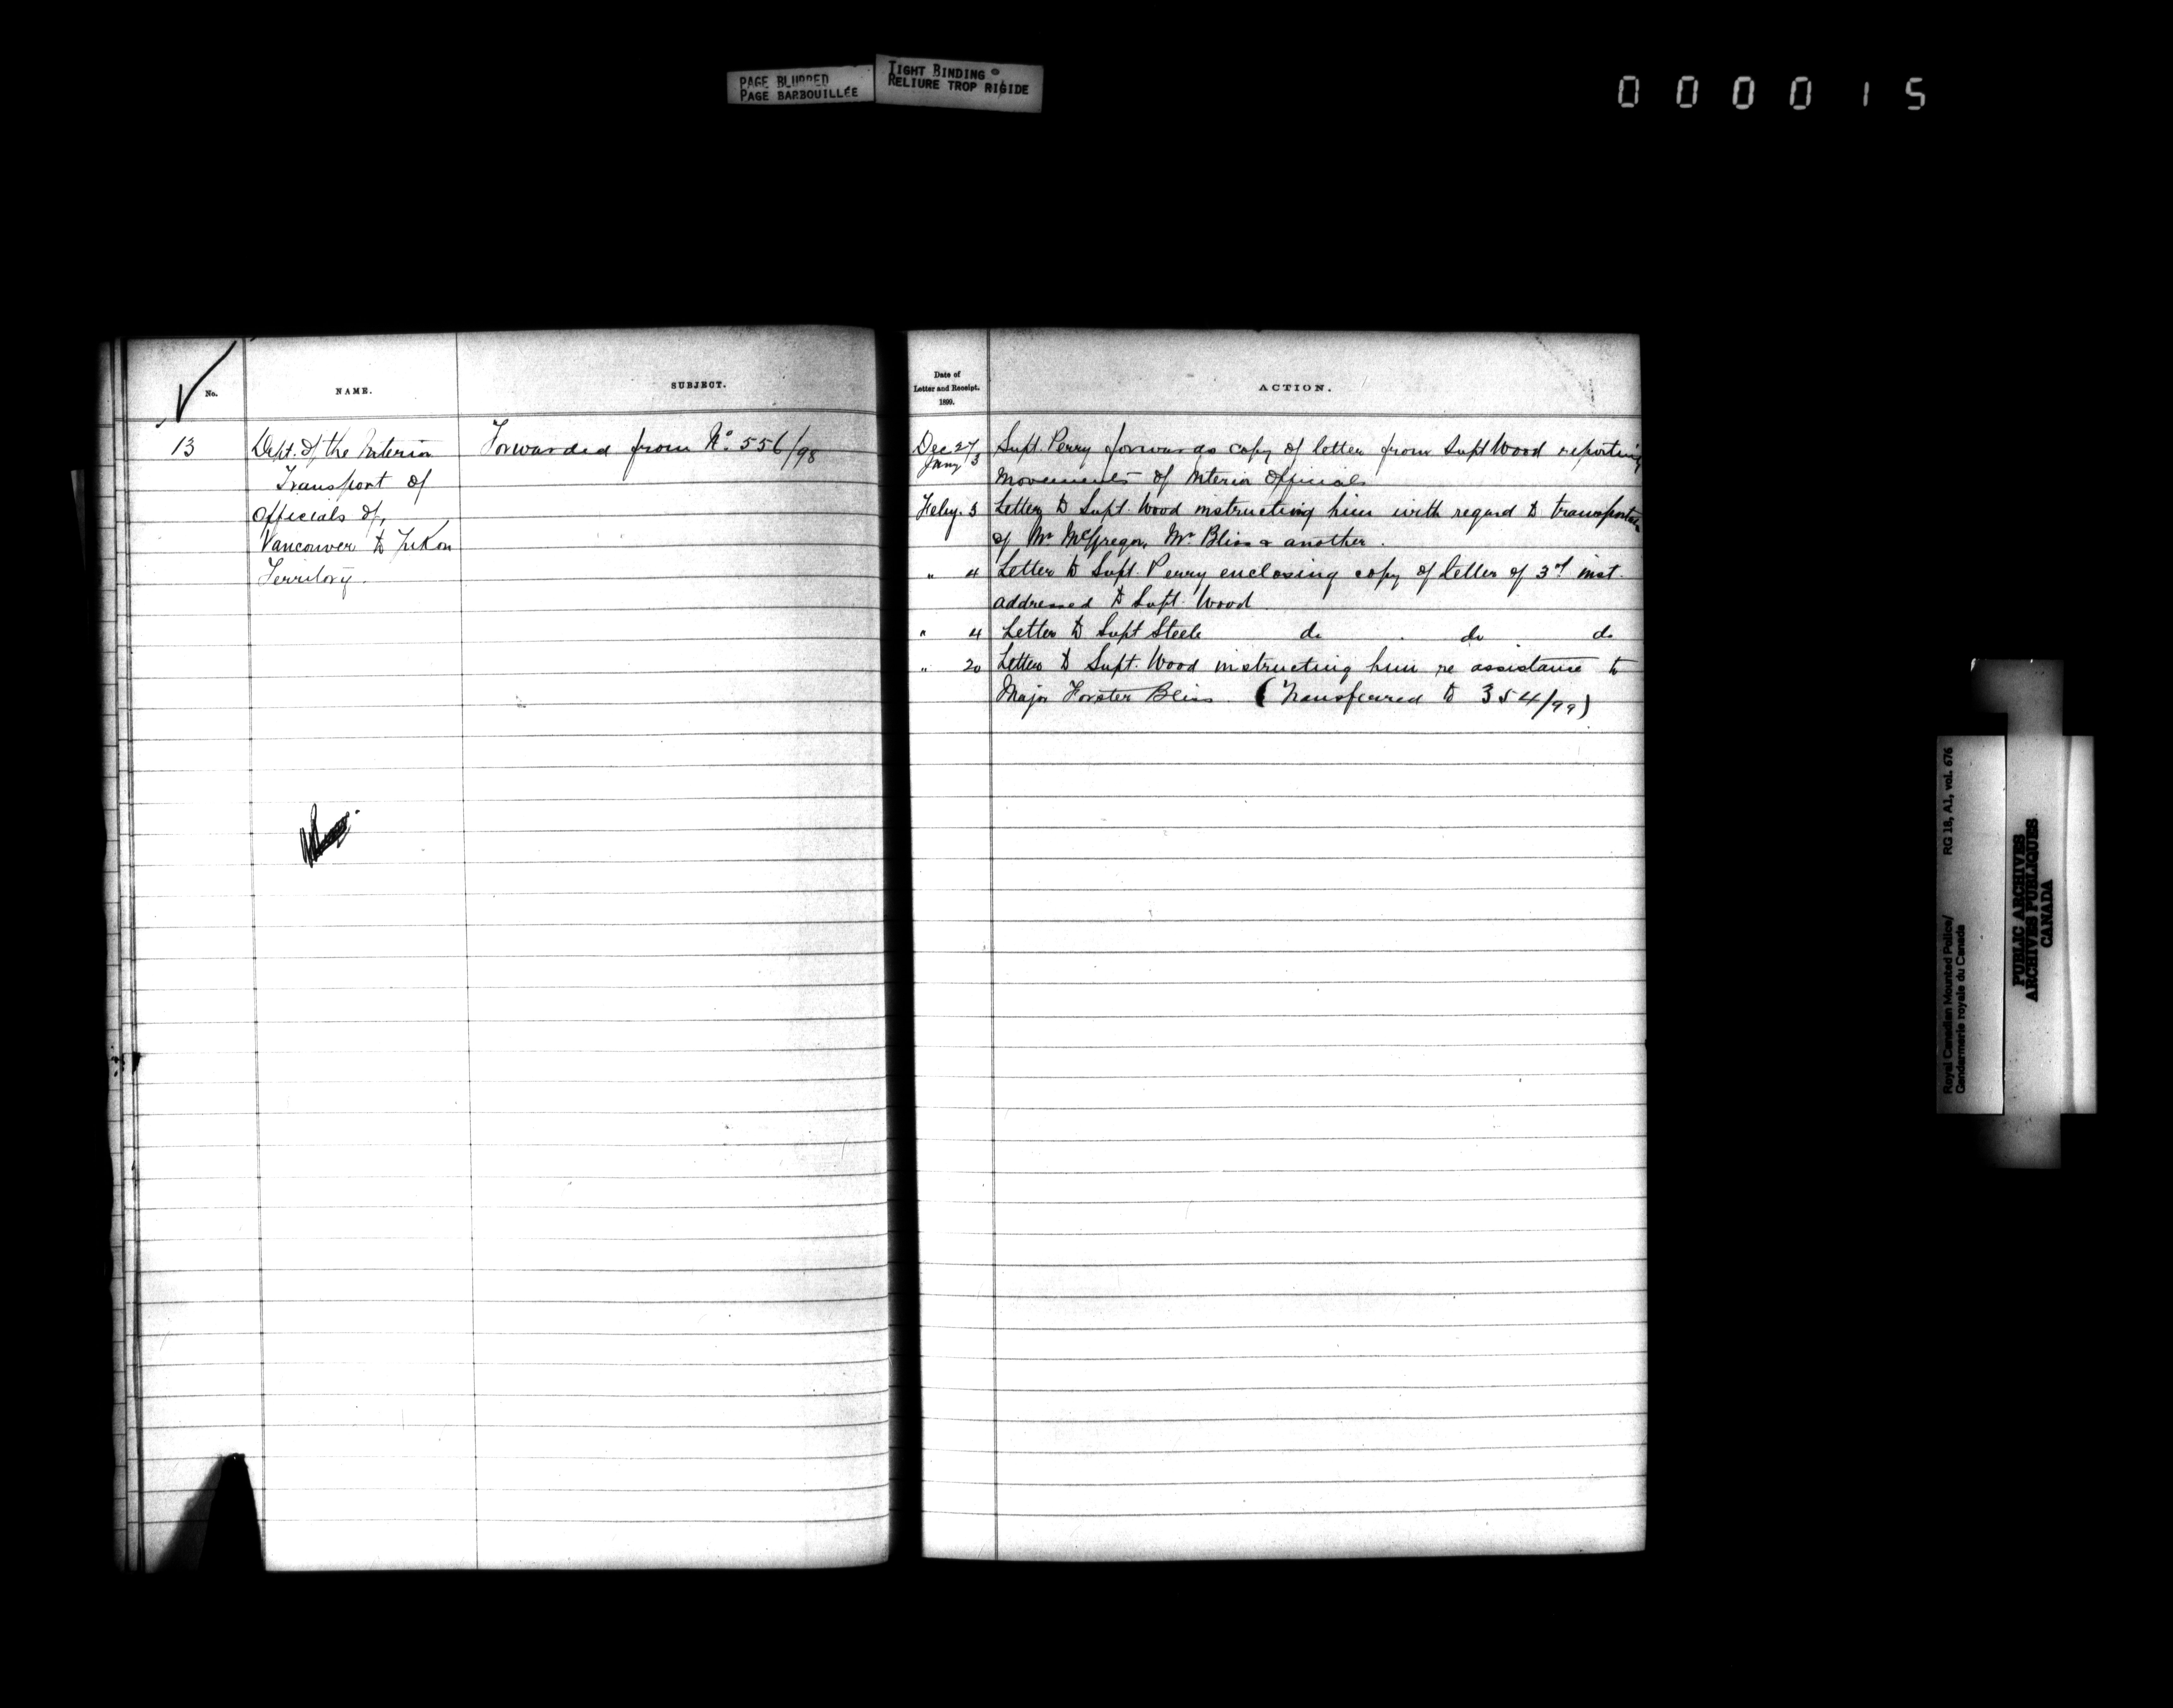 PAGE BLURRED
PAGE BARBOUILLÉE
TIGHT BINDING
RELIURE TROP RIGIDE
000015
No.
NAME.
SUBJECT.
Date of
Letter and Receipt.
1899.
ACTION.
13
Dept. of the Interior
Transport of
Officials of,
Vancouver to Yukon
Territory.
Forwarded from No. 556/98
Dec 27/
Jany 3
Supt. Perry forwards copy of letter from Supt Wood reporting
movements of Interior Officials
Feby. 3 Letter to Supt. Wood instructing him with regard to transportation
of Mr McGregor, Mr Bliss & another.
" 4 Letter to Supt. Perry enclosing copy of letter of 3rd inst.
addressed to Supt. Wood
" 4 Letter to Supt Steele do do do
" 20 Letter to Supt. Wood instructing him re assistance to
Major Forster Bliss. (Transferred to 354/99)
Royal Canadian Mounted Police/ RG 18, A1, vol. 676
Gendarmerie royale du Canada
PUBLIC ARCHIVES
ARCHIVES PUBLIQUES
CANADA